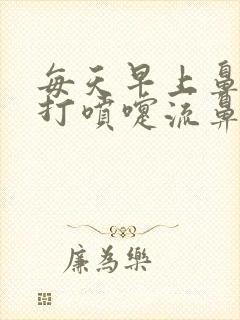 每天早上鼻
打噴嚏流鼻
廉為樂